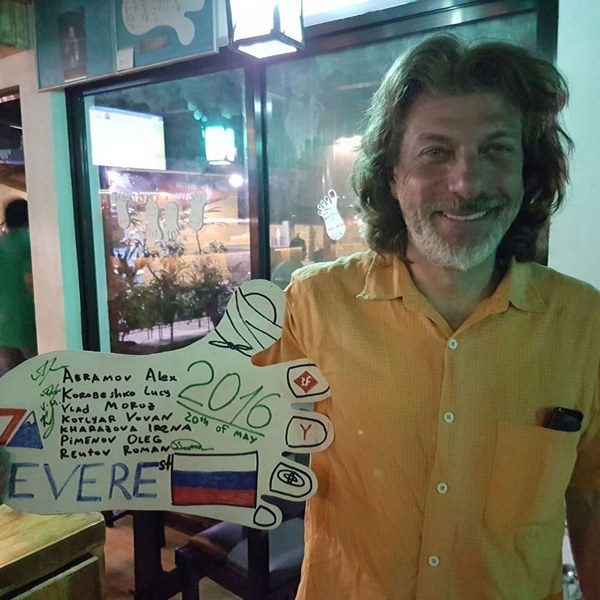 ABRAMOV ALEX
KOROBESHKO LUCY
VLAD MOROZ
KOTLYAR VOVAN
KHARAZOVA IRENA
PIMENOV OLEG
REUTOV ROMAN
2016
20TH OF MAY
EVEREst
Y